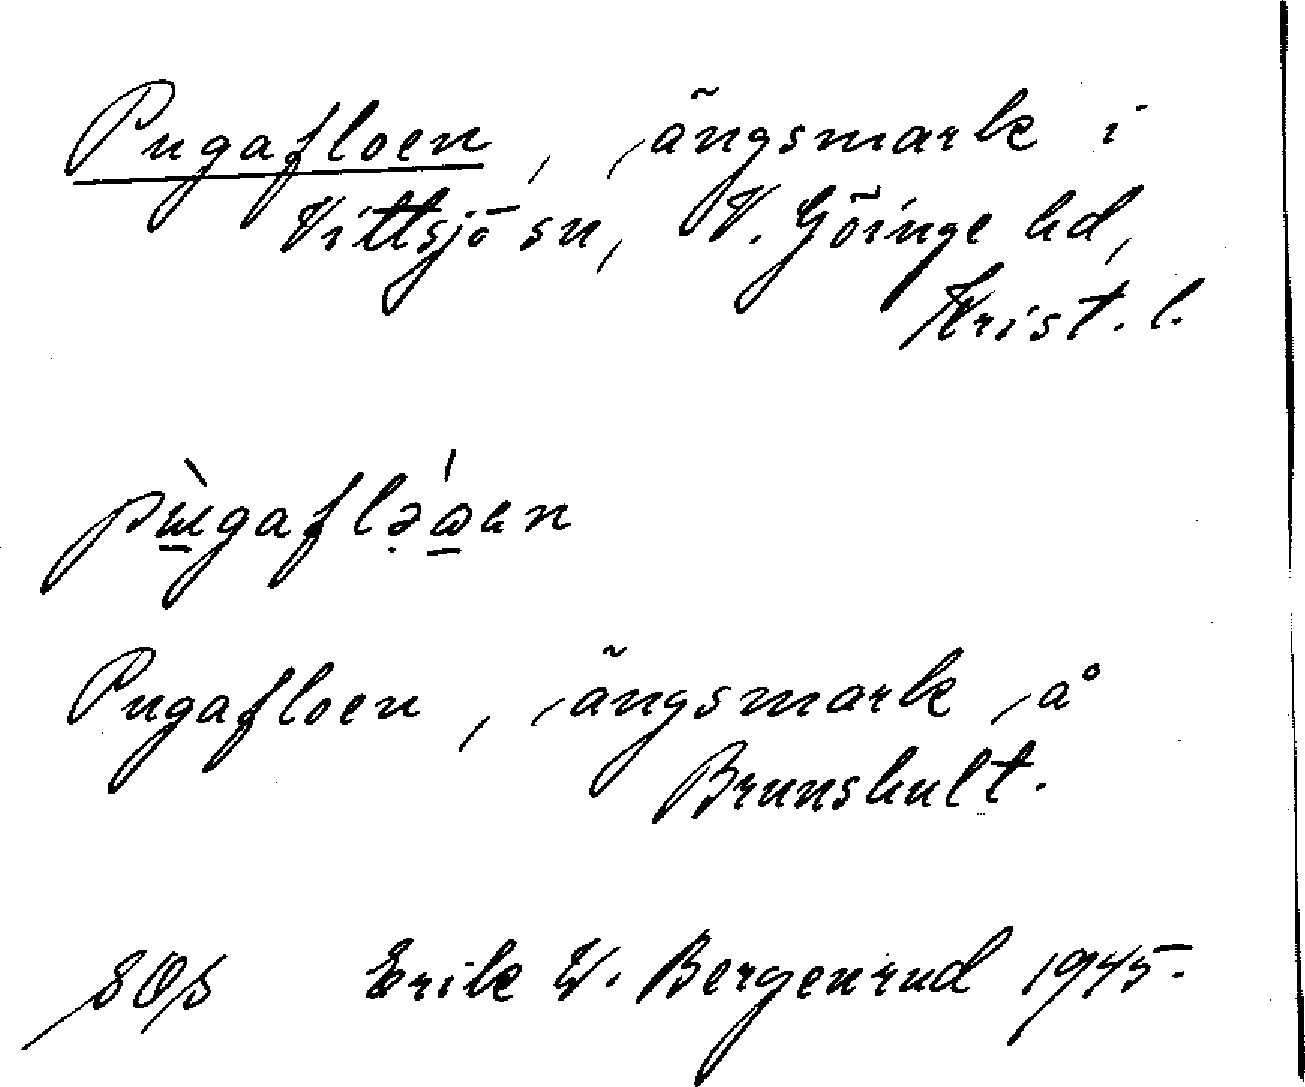 Pugafloen, ängsmark i
Vittsjö sn, V. Göinge hd,
Krist. l.
pɯ̱̀gaflə̣ώ̱en
Pugafloen, ängsmark å
Brunshult.
SOS Erik W. Bergenrud 1945.